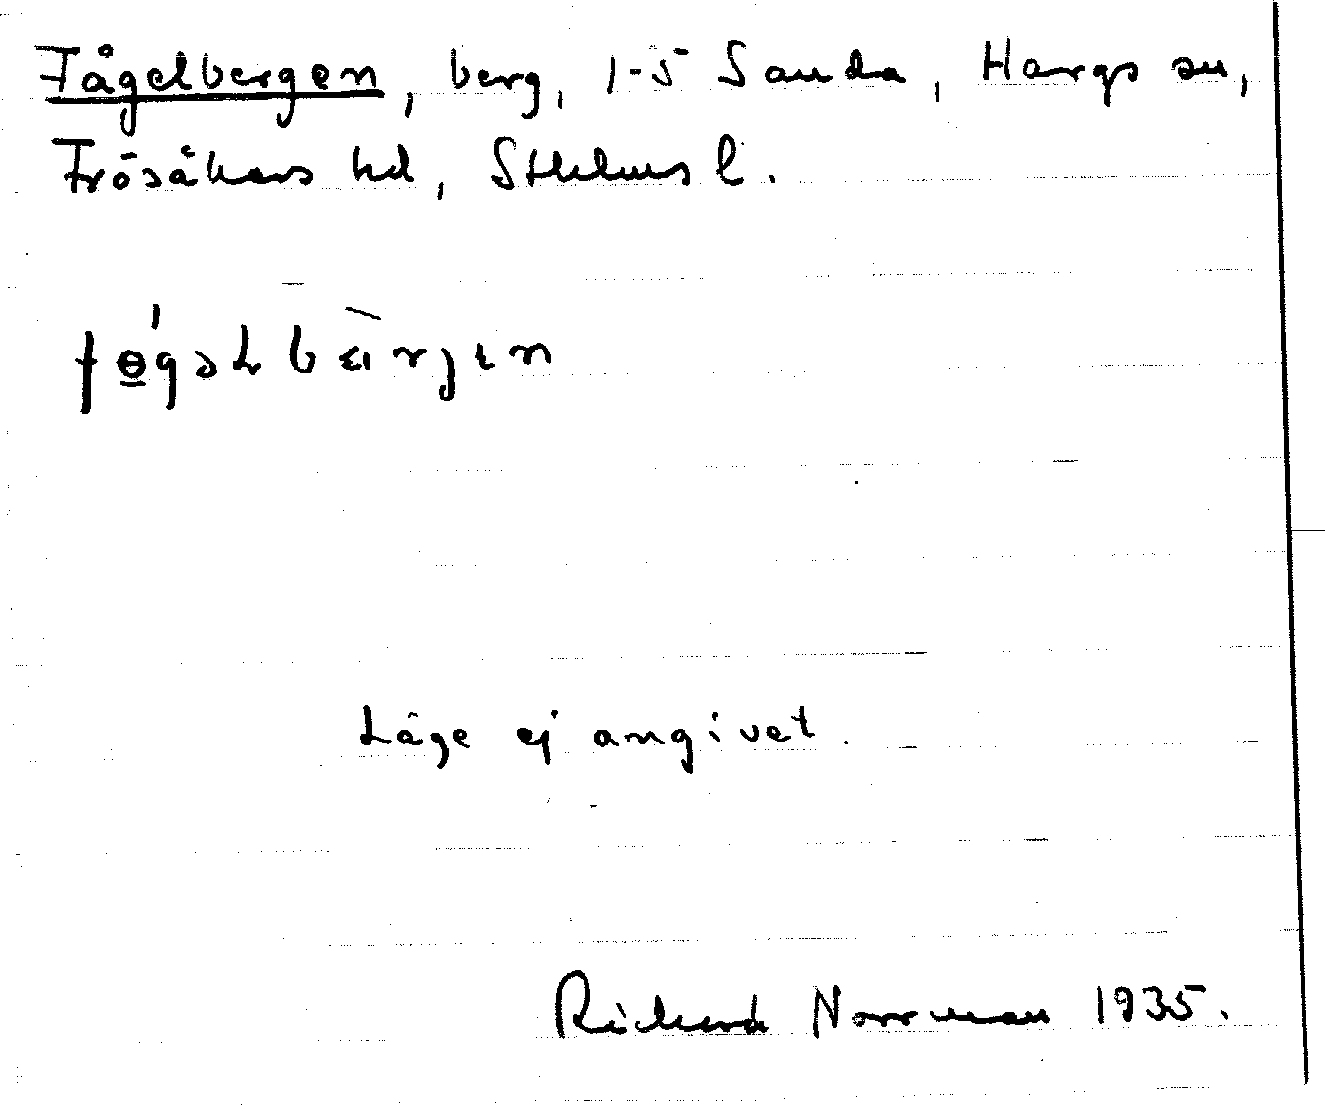 Fågelbergen, berg, 1-5 Sanda, Hargs sn,
Frösåkers hd, Sthlms l.
Läge ej angivet.
Richard Norrman 1935.